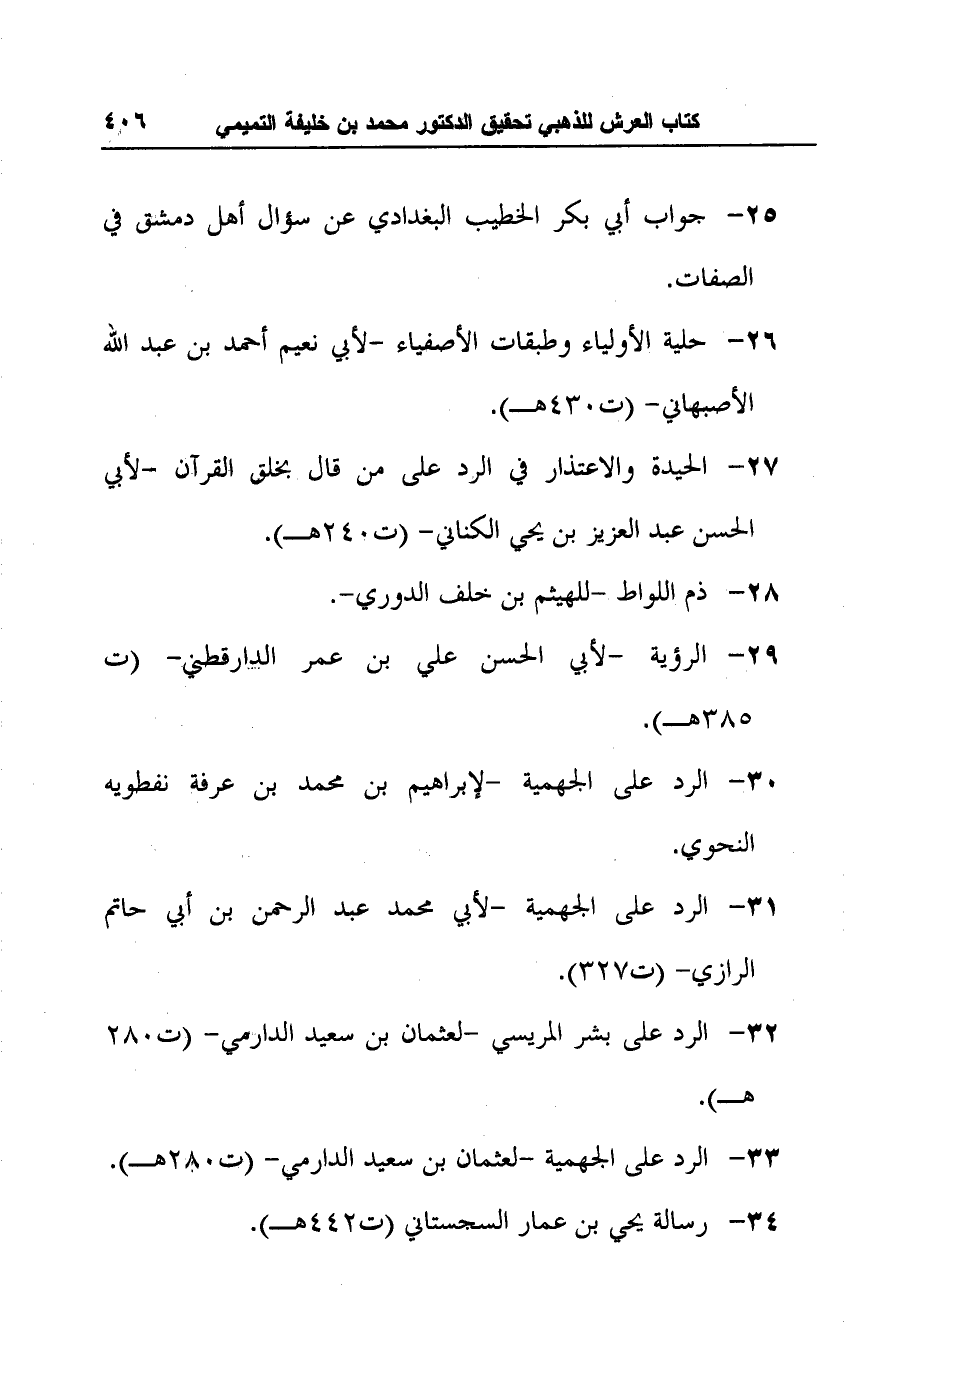 كتاب العرش للذهبي تحقيق الدكتور محمد بن خليفة التميمي ٤٠٦
٢٥- جواب أبي بكر الخطيب البغدادي عن سؤال أهل دمشق في
الصفات.
٢٦- حلية الأولياء وطبقات الأصفياء -لأبي نعيم أحمد بن عبد الله
الأصبهاني- (ت٤٣٠هـ).
٢٧- الحيدة والاعتذار في الرد على من قال بخلق القرآن -لأبي
الحسن عبد العزيز بن يحي الكناني- (ت٢٤٠هـ).
٢٨- ذم اللواط -للهيثم بن خلف الدوري-.
٢٩- الرؤية -لأبي الحسن علي بن عمر الدارقطني- (ت
٣٨٥هـ).
٣٠- الرد على الجهمية -لإبراهيم بن محمد بن عرفة نفطويه
النحوي.
٣١- الرد على الجهمية -لأبي محمد عبد الرحمن بن أبي حاتم
الرازي- (ت٣٢٧).
٣٢- الرد على بشر المريسي -لعثمان بن سعيد الدارمي- (ت٢٨٠
هـ).
٣٣- الرد على الجهمية -لعثمان بن سعيد الدارمي- (ت٢٨٠هـ).
٣٤- رسالة يحي بن عمار السجستاني (ت٤٤٢هـ).